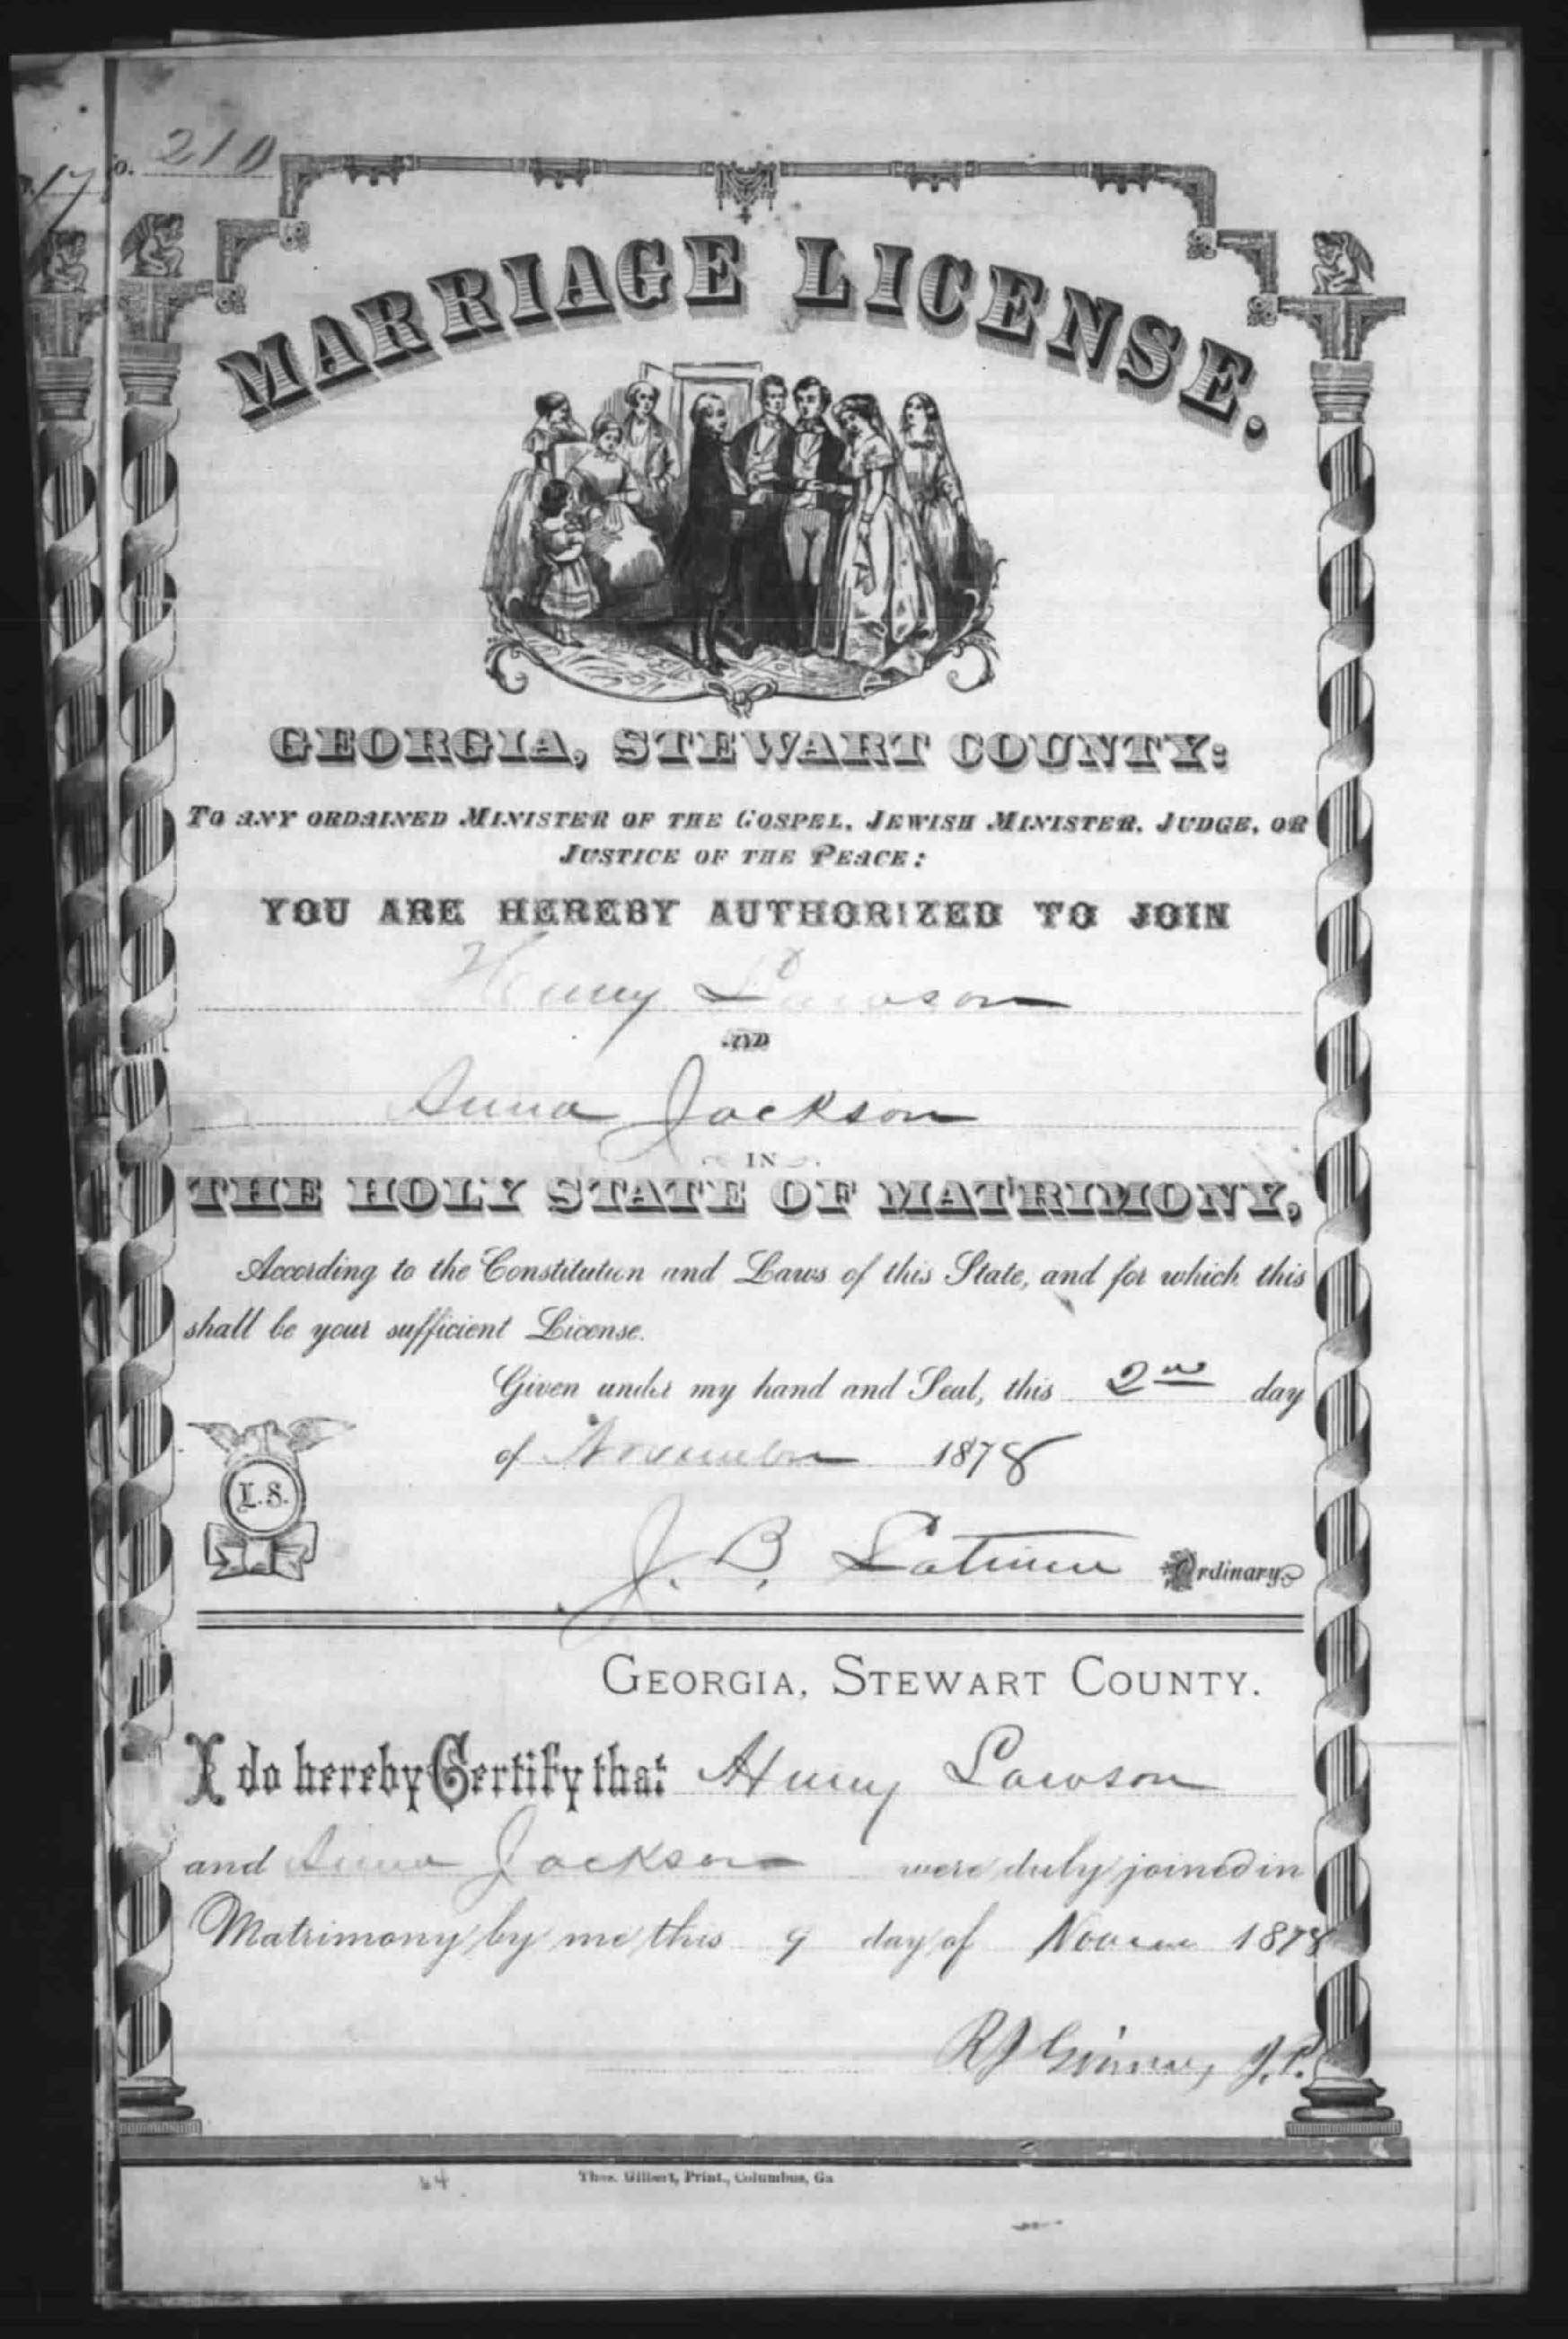 No. 210
17
MARRIAGE LICENSE.
GEORGIA, STEWART COUNTY:
TO ANY ORDAINED MINISTER OF THE GOSPEL, JEWISH MINISTER, JUDGE, OR
JUSTICE OF THE PEACE:
YOU ARE HEREBY AUTHORIZED TO JOIN
Henry Lawson
AND
Anna Jackson
IN
THE HOLY STATE OF MATRIMONY,
According to the Constitution and Laws of this State, and for which this
shall be your sufficient License.
Given under my hand and Seal, this 2nd day
of November 1878
L. S.
J. B. Latimer Ordinary
GEORGIA, STEWART COUNTY.
I do hereby Certify that Henry Lawson
and Anna Jackson were duly joined in
Matrimony by me this 9 day of 1878
J.P.
Thos. Gilbert, Print., Columbus, Ga
64